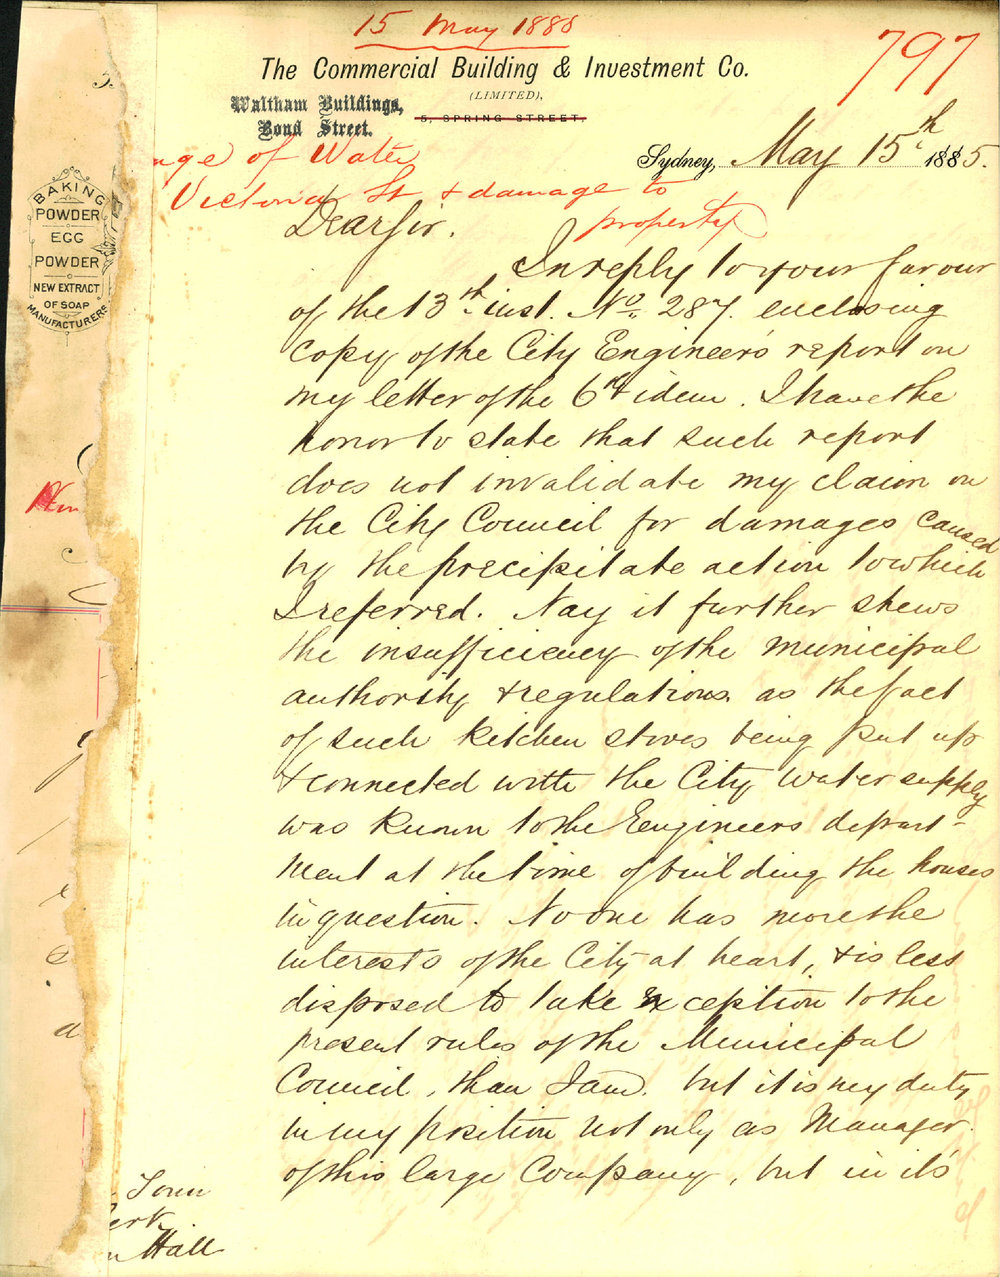 15 May 1888
797
The Commercial Building & Investment Co.
(LIMITED),
Waltham Buildings,
Bond Street.
5, SPRING STREET,
Sydney, May 15th 1885.
nge of Water
Victoria St & damage to
property
Dear Sir.
In reply to your favour
of the 13th inst. No. 287. enclosing
copy of the City Engineer's report on
my letter of the 6th idem. I have the
honor to state that such report
does not invalidate my claim on
the City Council for damages caused
by the precipitate action to which
I referred. Nay it further shews
the insufficiency of the municipal
authority & regulations as the fact
of such kitchen stoves being put up
& connected with the City water supply
was known to the Engineers depart-
ment at the time of building the houses
in question. No one has more the
interests of the City at heart, & is less
disposed to take exception to the
present rules of the Municipal
Council, than I am. but it is my duty
in my position not only as Manager
of this large Company, but in it's
Town
lerk
n Hall
BAKING
POWDER
EGG
POWDER
NEW EXTRACT
OF SOAP
MANUFACTURERS